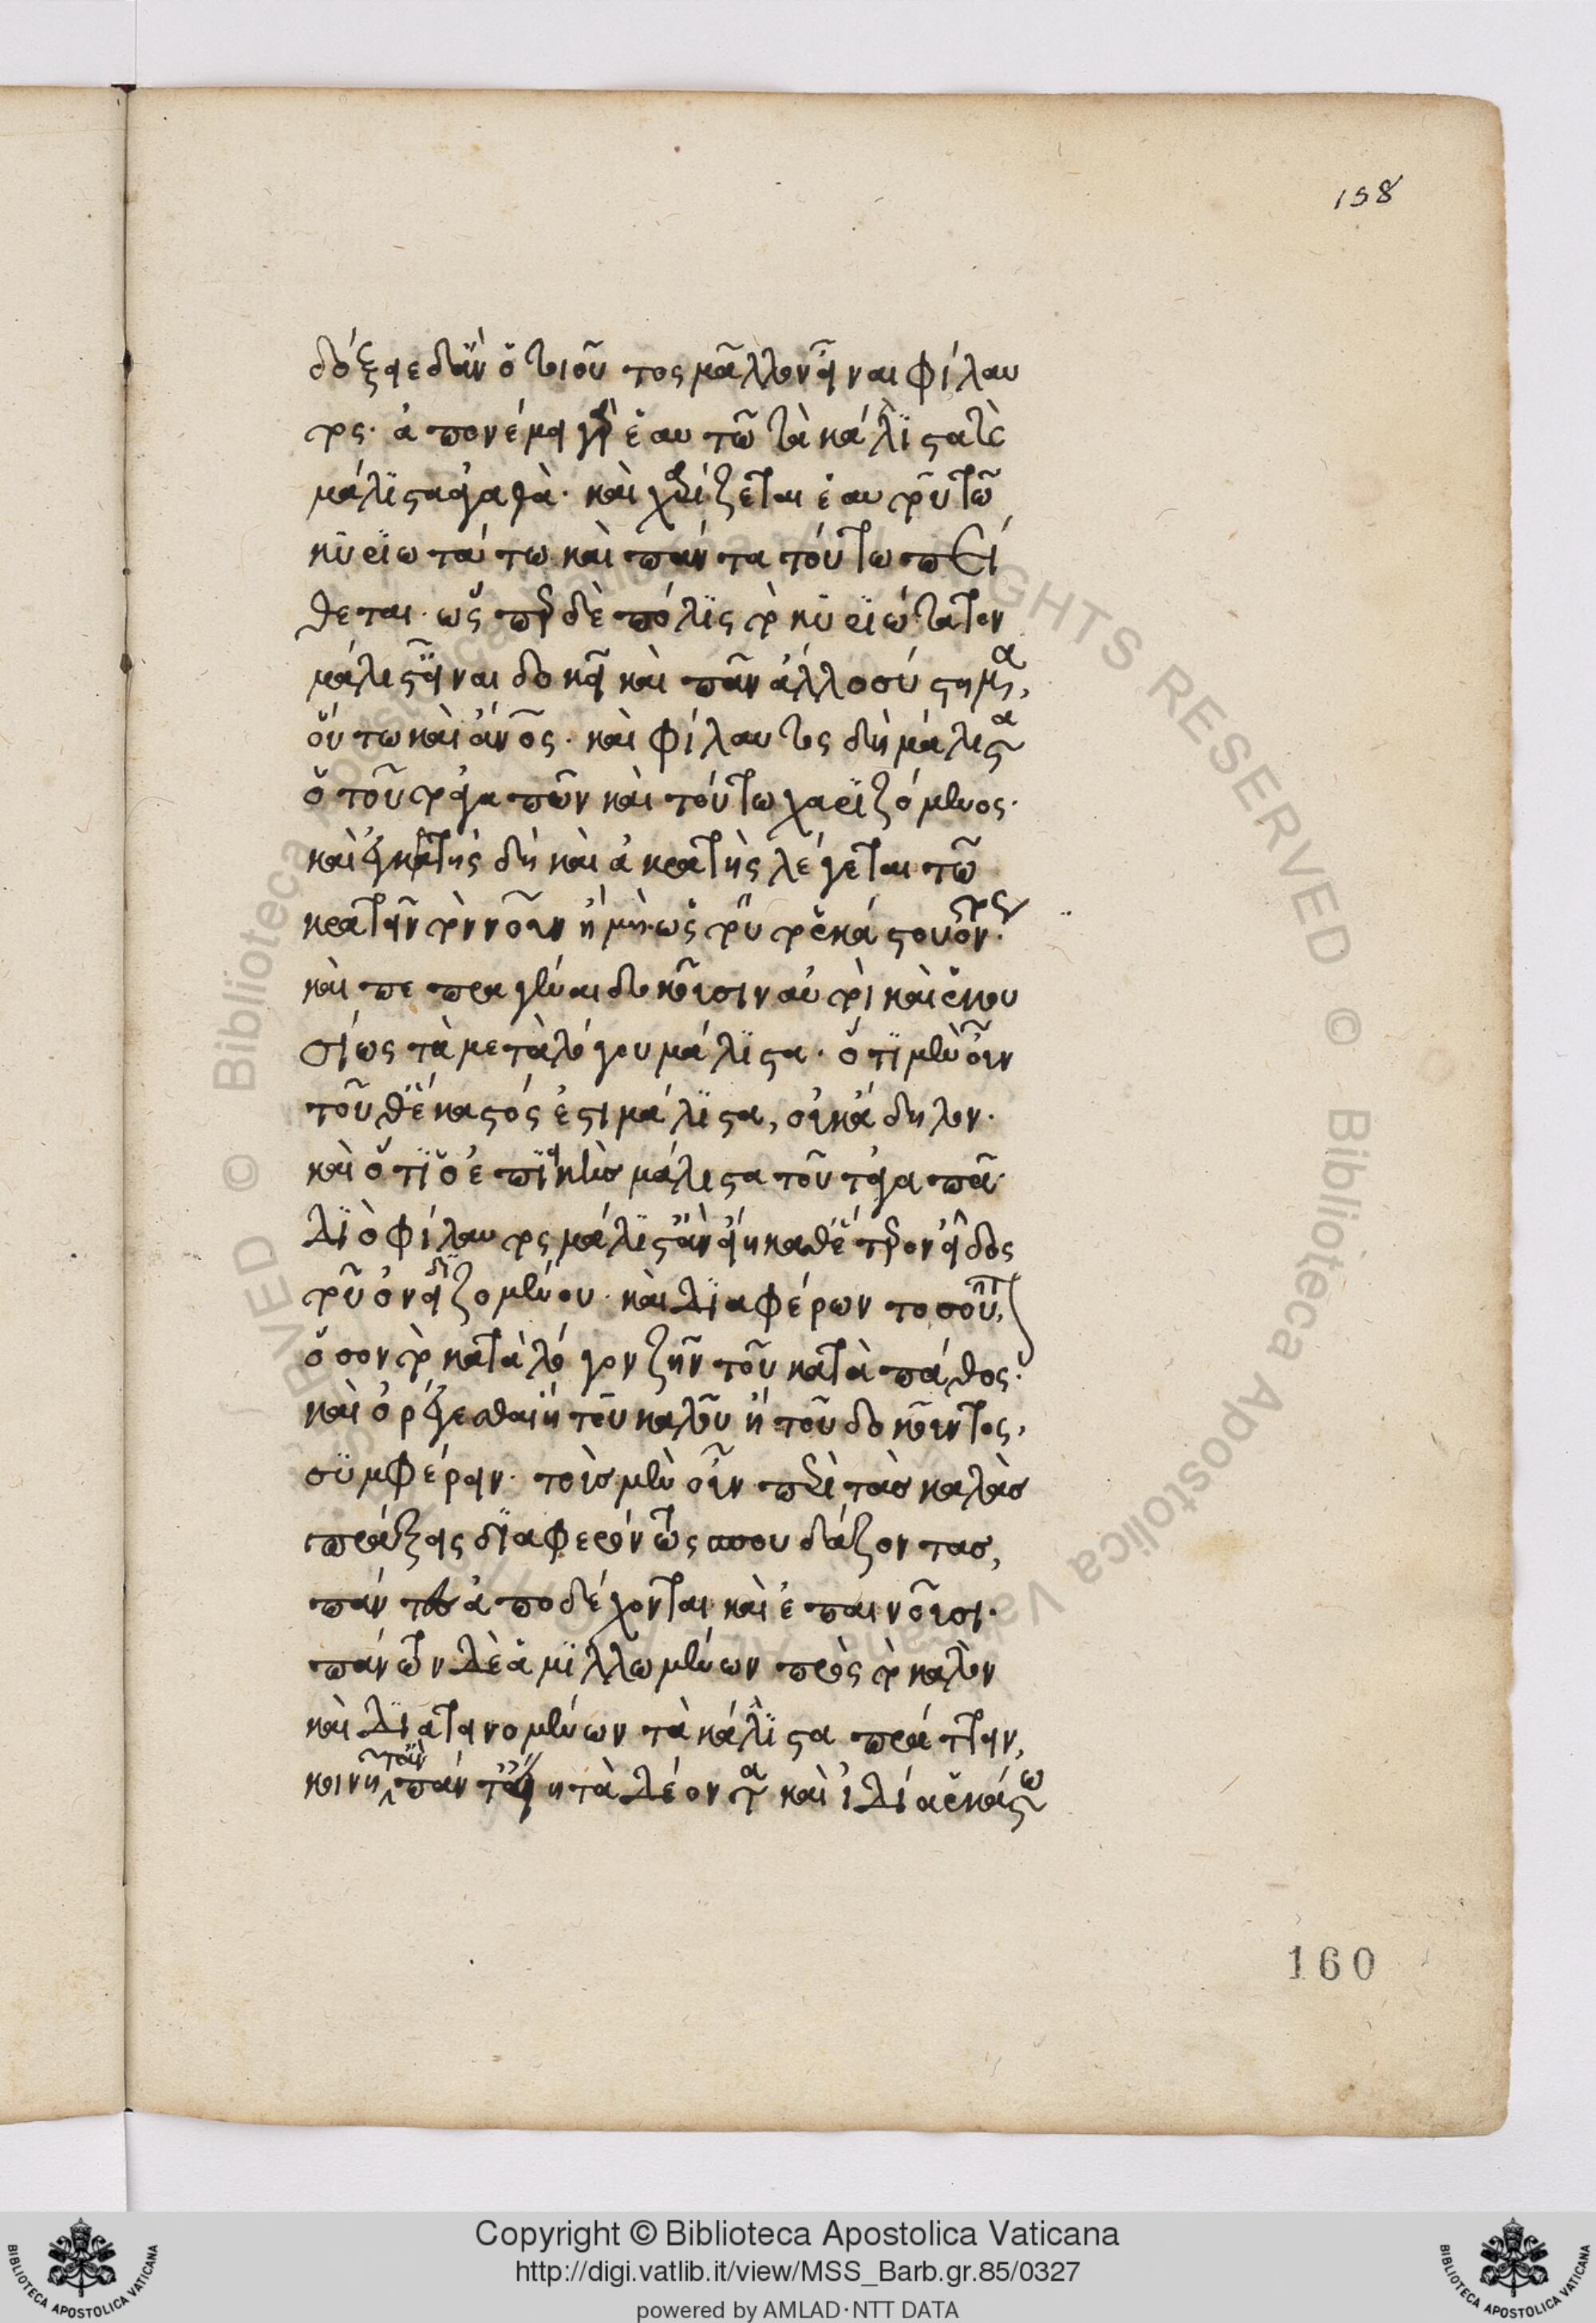 δόξειε δ' ἂν ὁ τοιοῦτος μᾶλλον εἶναι φίλαυ
τος· ἀπονέμει γὰρ ἑαυτῶ τὰ κάλλϊστα τὲ
μάλϊστα ἀγαθὰ· καὶ χαρίζεται ἑαυτοῦ τῶ
κυρϊωτάτω καὶ πάντα τούτω πεί
θεται· ὥσπερ δὲ πόλϊς τὸ κυρϊώτατον
μάλιστ' εἶναι δοκεῖ καὶ πᾶν ἄλλο σύστημα,
οὕτω καὶ ἄνος· καὶ φίλαυτος δὴ μάλιστα
ὁ τοῦτο ἀγαπῶν καὶ τούτω χαρϊζόμενος·
καὶ ἐγκρατὴς δὴ καὶ ἀκρατὴς λέγεται τῶ
κρατεῖν τὸν νοῦν ἢ μὴ· ὡς τοῦ το ἑκάστου ὄντος·
καὶ πεπραγέναι δοκοῦσιν αὐτοὶ καὶ ἑκου
σίως τὰ μετὰ λόγου μάλϊστα· ὅτϊ μὲν οὖν
τοῦθ' ἕκαστός ἐστι μάλϊστα, οὐκ ἄδηλον·
καὶ ὅτϊ ὁ ἐπϊεικὴς μάλιστα τοῦτ' ἀγαπᾶ·
Δϊὸ φίλαυτος μάλϊστ' ἂν εἴη καθ' ἕτερον εἶδος
τοῦ ὀνειδϊζομένου· καὶ Δϊαφέρων τοσοῦτ,
ὅσον τὸ κατὰ λόγον ζῆν τοῦ κατὰ πάθος·
καὶ ὀρέγεσθαι ἢ τοῦ καλοῦ ἢ τοῦ δοκοῦντος,
συμφέρειν· τοὺς μὲν οὖν περὶ τὰς καλὰς
πράξεις δϊαφερόντως σπουδάζοντας,
πάντες ἀποδέχονται καὶ ἐπαινοῦσι·
πάντων Δὲ ἁμϊλλωμένων πρὸς τὸ καλὸν
καὶ Δϊατεινομένων τὰ κάλλϊστα πράττειν,
κοινῆ τ' ἂν πάντ' εἴη τὰ Δέοντα καὶ ἰΔία ἑκάστω
158
160
Copyright © Biblioteca Apostolica Vaticana
http://digi.vatlib.it/view/MSS_Barb.gr.85/0327
powered by AMLAD·NTT DATA